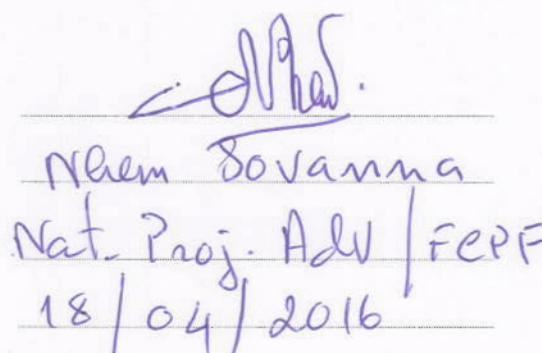 Nhem Sovanna
Nat. Proj. Adv / FCPF
18/04/2016